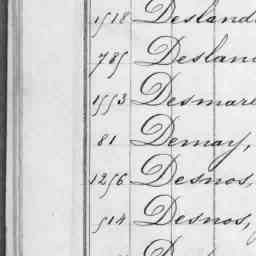 1518 Desland
785 Deslan
1553 Desmare
81 Demay,
1256 Desnos,
514 Desnos,